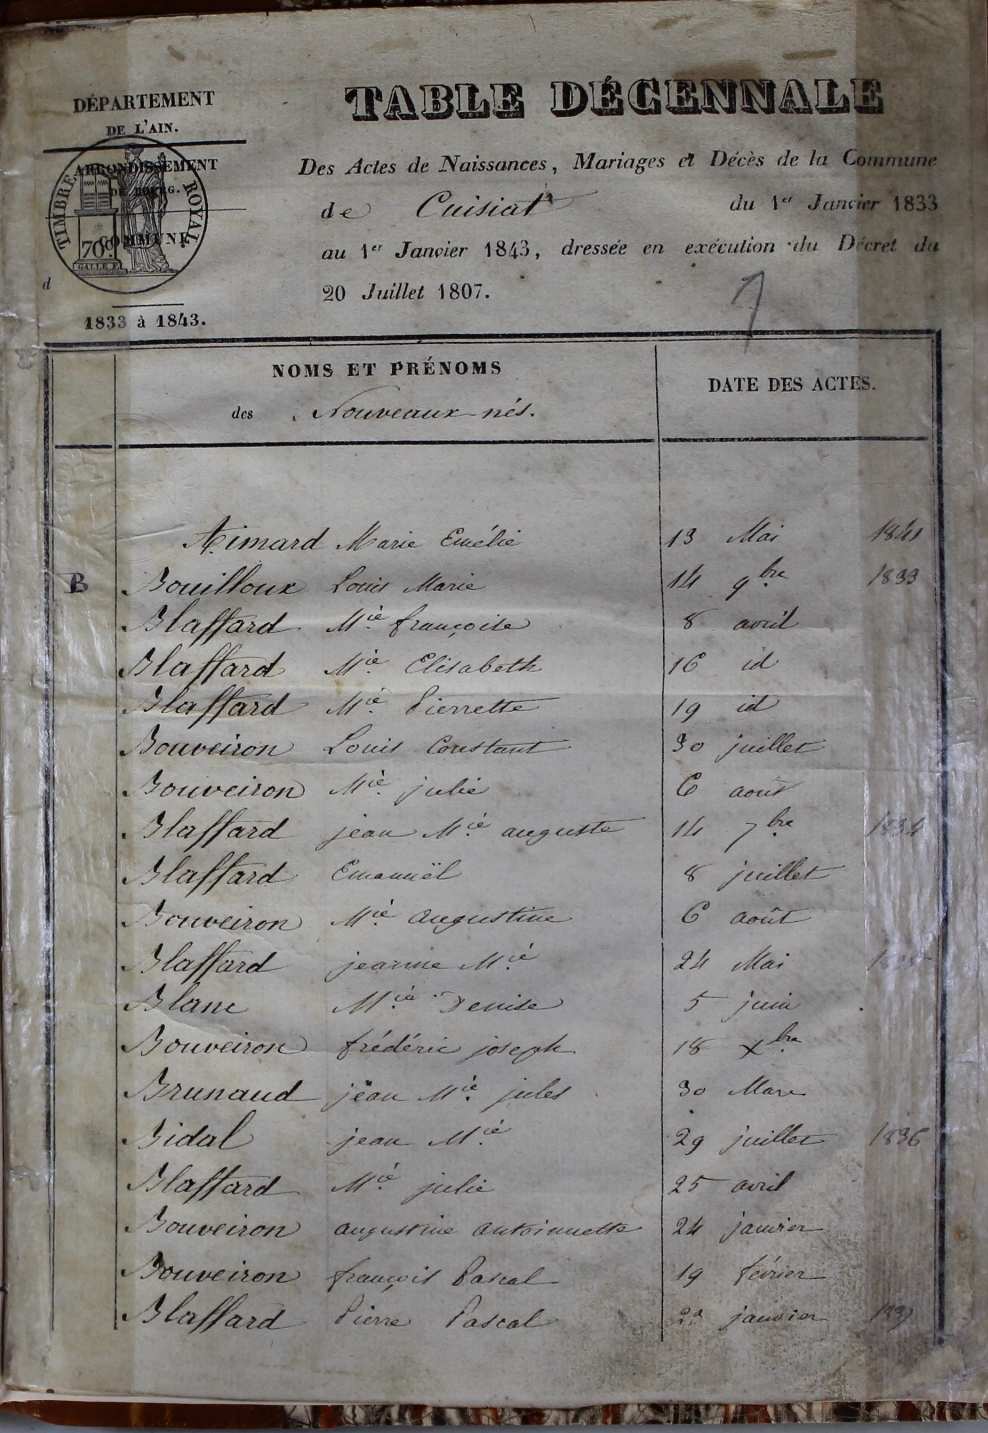 DÉPARTEMENT
DE L'AIN.
ARRONDISSEMENT
DE BOURG.
COMMUNE
d
TIMBRE ROYAL
70c.
1833 à 1843.
TABLE DÉCENNALE
Des Actes de Naissances, Mariages et Décès de la Commune
de Cuisiat du 1er Janvier 1833
au 1er Janvier 1843, dressée en exécution du Décret du
20 Juillet 1807.
NOMS ET PRÉNOMS
des Nouveaux-nés.
DATE DES ACTES.
Aimard Marie Emélie 13 Mai 1841
B Bouilloux Louis Marie 14 9bre 1833
Blaffard Mie françoise 8 avril
Blaffard Mie Elisabeth 16 id
Blaffard Mie Pierrette 19 id
Bouveiron Louis Constant 30 juillet
Bouveiron Mie julie 6 août
Blaffard jean Mie auguste 14 7bre 1834
Blaffard Emanuël 8 juillet
Bouveiron Mie augustine 6 août
Blaffard jeanne Mie 24 Mai 1835
Blanc Mie Denise 5 juin
Bouveiron frédéric joseph 18 Xbre
Brunaud jean Mie jules 30 Mars
Bidal jean Mie 29 juillet 1836
Blaffard Mie julie 25 avril
Bouveiron augustine antoinette 24 janvier
Bouveiron françois Pascal 19 février
Blaffard Pierre Pascal janvier 1837